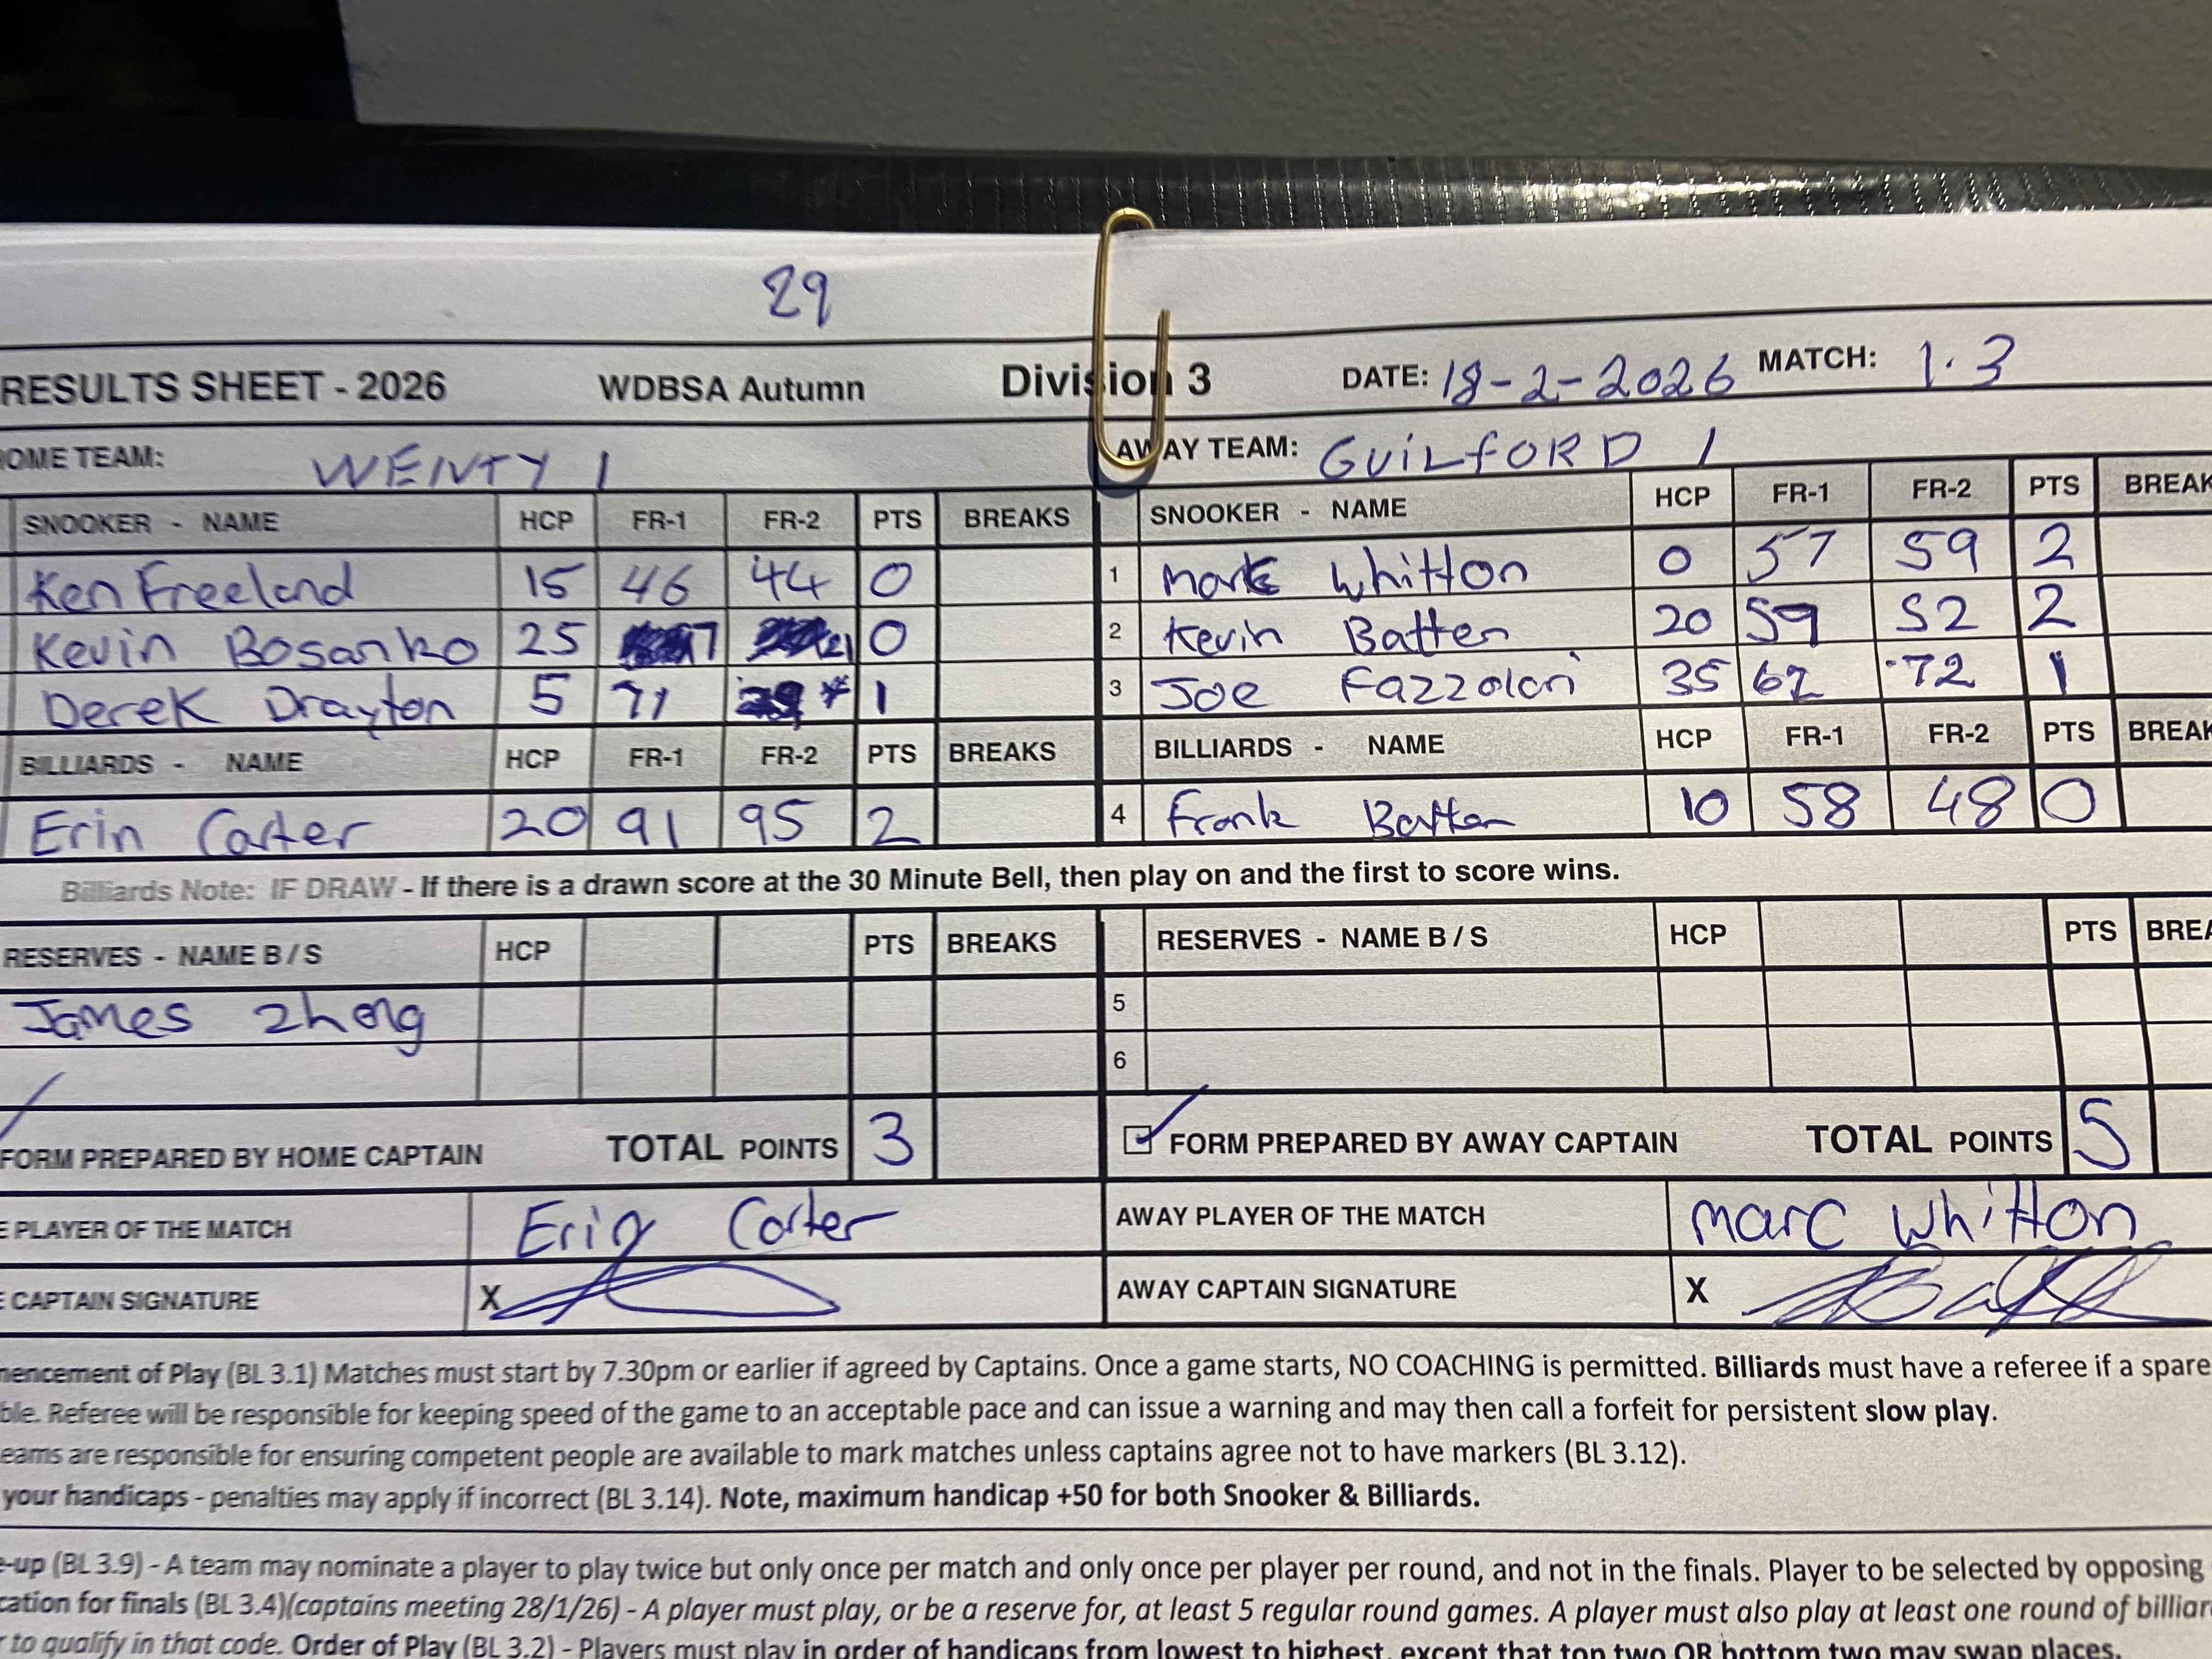 29
RESULTS SHEET - 2026 WDBSA Autumn Division 3 DATE: 18-2-2026 MATCH: 1.3
OME TEAM: WENTY 1 AWAY TEAM: GUILFORD 1
SNOOKER - NAME HCP FR-1 FR-2 PTS BREAKS SNOOKER - NAME HCP FR-1 FR-2 PTS BREAK
Ken Freeland 15 46 44 0 1 Mark Whitton 0 57 59 2
Kevin Bosanko 25 0 2 Kevin Batten 20 59 52 2
Derek Drayton 5 71 1 3 Joe Fazzolari 35 62 72 1
BILLIARDS - NAME HCP FR-1 FR-2 PTS BREAKS BILLIARDS - NAME HCP FR-1 FR-2 PTS BREAK
Erin Carter 20 91 95 2 4 Frank Batten 10 58 48 0
Billiards Note: IF DRAW - If there is a drawn score at the 30 Minute Bell, then play on and the first to score wins.
RESERVES - NAME B / S HCP PTS BREAKS RESERVES - NAME B / S HCP PTS BREA
James Zhong 5
6
FORM PREPARED BY HOME CAPTAIN TOTAL POINTS 3 FORM PREPARED BY AWAY CAPTAIN TOTAL POINTS 5
E PLAYER OF THE MATCH Erin Carter AWAY PLAYER OF THE MATCH Marc Whitton
E CAPTAIN SIGNATURE X AWAY CAPTAIN SIGNATURE X
mencement of Play (BL 3.1) Matches must start by 7.30pm or earlier if agreed by Captains. Once a game starts, NO COACHING is permitted. Billiards must have a referee if a spare
ble. Referee will be responsible for keeping speed of the game to an acceptable pace and can issue a warning and may then call a forfeit for persistent slow play.
eams are responsible for ensuring competent people are available to mark matches unless captains agree not to have markers (BL 3.12).
your handicaps - penalties may apply if incorrect (BL 3.14). Note, maximum handicap +50 for both Snooker & Billiards.
e-up (BL 3.9) - A team may nominate a player to play twice but only once per match and only once per player per round, and not in the finals. Player to be selected by opposing
cation for finals (BL 3.4)(captains meeting 28/1/26) - A player must play, or be a reserve for, at least 5 regular round games. A player must also play at least one round of billiar
r to qualify in that code. Order of Play (BL 3.2) - Players must play in order of handicaps from lowest to highest, except that top two OR bottom two may swap places.